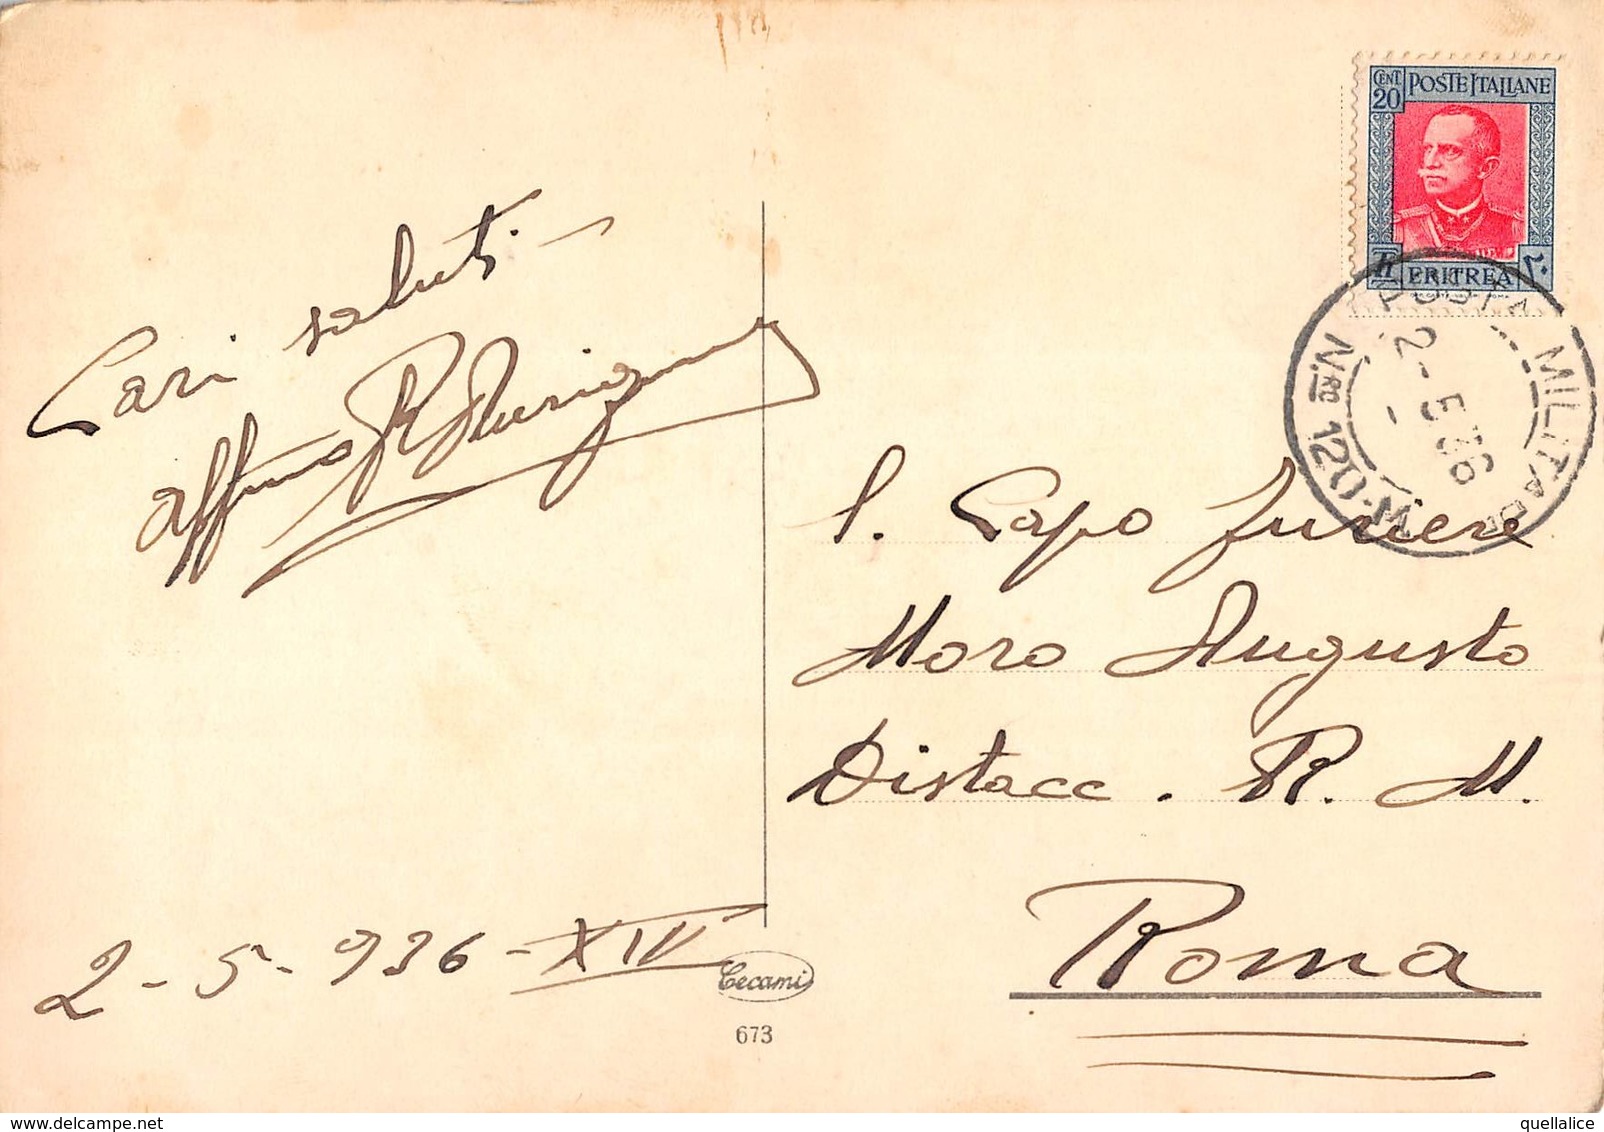 Cari saluti
affmo
2-5-936-XIV
Cecami
673
CENT. 20
POSTE ITALIANE
ERITREA
POSTA MILITARE
2-5 36
N.ro 120
S. Capo Furiere
Moro Augusto
Distacc. R. M.
Roma
quellalice